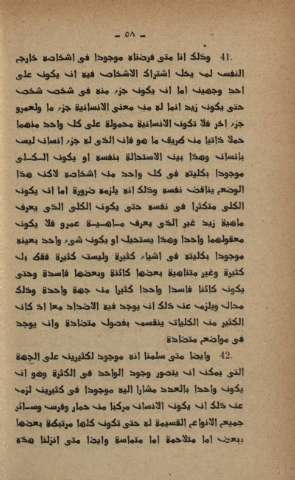 — ٥٨ —
41. وذلك انا متى فرضناه موجودا فى اشخاصه خارج
النفس لم يخل اشتراك الاشخاص فيه ان يكون على
احد وجهين اما ان يكون جزء منه فى شخص شخص
حتى يكون زيد انما له من معنى الانسانية جزء ما ولعمرو
جزء اخر فلا تكون الانسانية محمولة على كل واحد منهما
حملا ذاتيا من طريق ما هو فان الذى له جزء انسان ليس
بانسان وهذا بين الاستحالة بنفسه او يكون الكلى
موجودا بكليته فى كل واحد من اشخاصه لاكن هذا
الوضع يناقض نفسه وذلك انه يلزمه ضرورة اما ان يكون
الكلى متكثرا فى نفسه حتى يكون الكلى الذى يعرف
ماهية زيد غير الذى يعرف ماهية عمرو فلا يكون
معقولهما واحدا وهذا يستحيل او يكون شىء واحد بعينه
موجودا بكليته فى اشياء كثيرة وليست كثيرة فقط بل
كثيرة وغير متناهية بعضها كائنة وبعضها فاسدة وحتى
يكون كائنا فاسدا واحدا كثيرا من جهة واحدة وذلك
محال ويلزم عند ذلك ان يوجد فيه الاضداد معا اذ كان
الكثير من الكليات ينقسم بفصول متضادة وان يوجد
فى مواضع متضادة
42. وايضا متى سلمنا انه موجود لكثيرين على الجهة
التى يمكن ان يتصور وجود الواحد فى الكثرة وهو ان
يكون واحدا بالعدد مشارا اليه موجودا فى كثيرين لزم
عند ذلك ان يكون الانسان مركبا من حمار وفرس وسائر
جميع الانواع القسيمة له حتى تكون كلها مرتبطة بعضها
ببعض اما متلاحمة اما متماسة وايضا متى انزلنا هذه